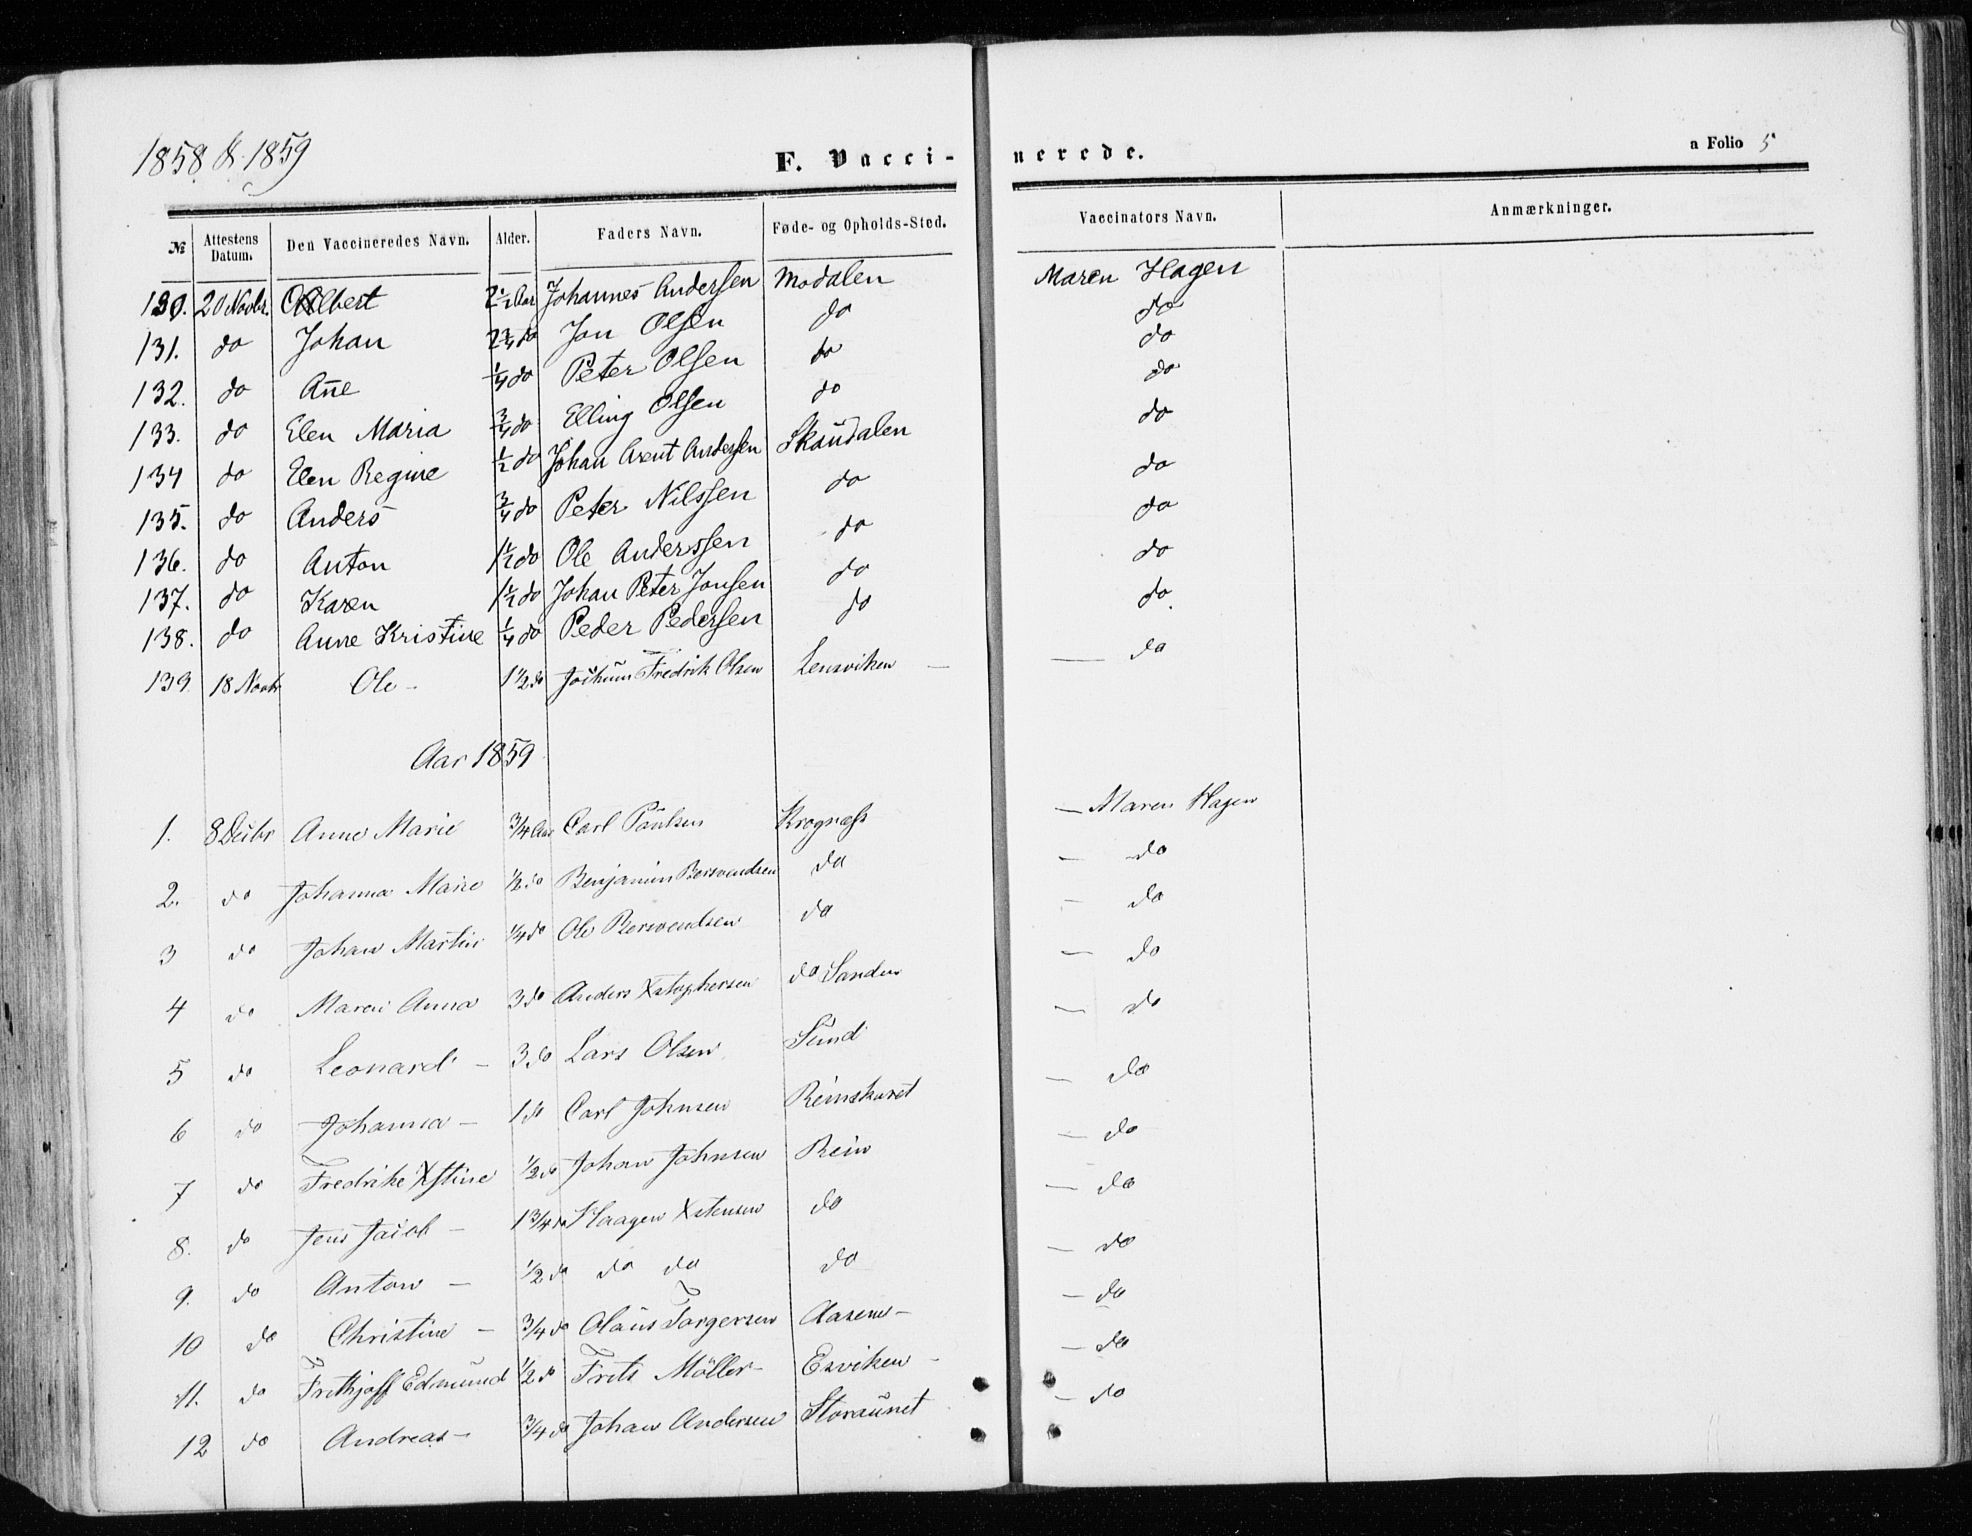 1858 & 1859
F. Vacci- nerede.
a Folio 5
№ Attestens Datum. Den Vaccineredes Navn. Alder. Faders Navn. Føde- og Opholds-Sted. Vaccinators Navn. Anmærkninger.
130. 20 Novbr. Albert 2½ Aar Johannes Anderssen Modalen Maren Hagen
131. do Johan 2¾ do Jon Olssen do do
132. do Añe ¼ do Peter Olssen do do
133. do Elen Maria ¾ do Elling Olssen do do
134 do Elen Regine ½ do Johan Arent Anderssen Skaudalen do
135. do Anders ¾ do Peter Nilssen do do
136. do Anton 1½ do Ole Anderssen do do
137. do Karen 1½ do Johan Peter Jonssen do do
138. do Anne Kristine ¼ do Peder Pederssen do do
139. 18 Novbr Ole - 1½ do Jochum Fredrik Olsen Lensviken — — do
Aar 1859
1. 8 Decbr Anne Marie ¾ Aar Carl Paulsen Krognæss — Maren Hagen
2. do Johanna Marie ½ do Benjamin Bersvendsen do — do
3 do Johan Martin ¼ do Ole Bersvendsen do — do
4 do Maren Anna 3 do Anders Xstophersen do Sanden — do
5 do Leonard - 3 do Lars Olsen Sund — do
6 do Johanna - 1 do Carl Johnsen Reinskaret — do
7 do Fredrike Xstine ½ do Johan Johnsen Rein — do
8. do Jens Jacob - 1¾ do Haagen Xstensen do — do
9. do Anton - ½ do do do do — do
10 do Christine - ¾ do Olaus Torgersen Aasen - — do
11. do Frithjoff Edmund ½ do Frits Möller - Esviken - — do
12 do Andreas - ¾ do Johan Andersen Storaunet — do